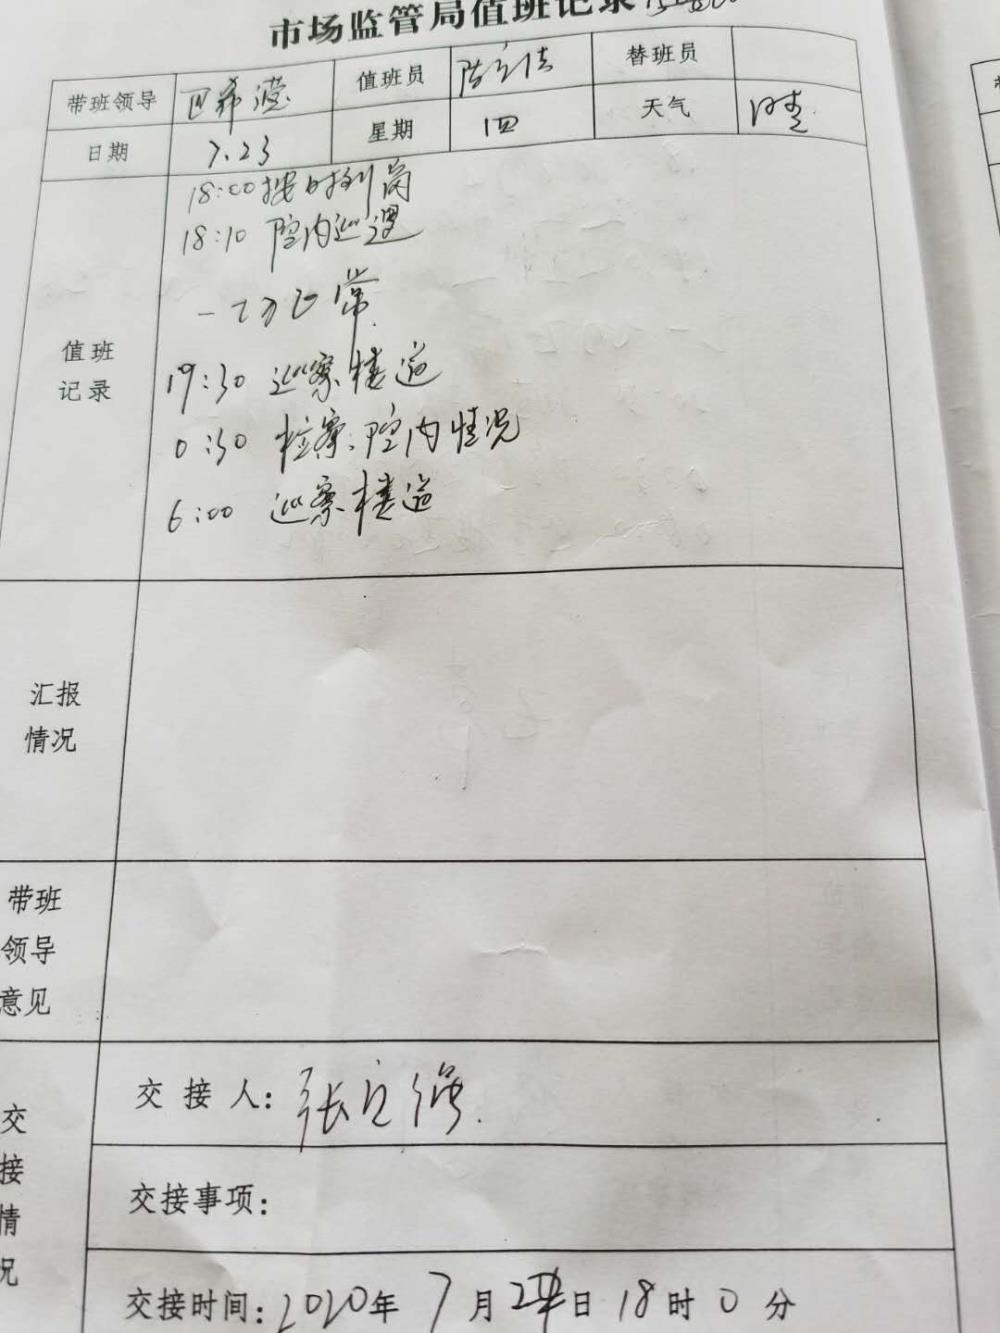 市场监管局值班记录
带班领导 巴希滢 值班员 替班员
日期 7.23 星期 四 天气 晴
值班记录
18:00 按时到岗
18:10 院内巡逻
一切正常
19:30 巡察楼道
0:30 检察院内情况
6:00 巡察楼道
汇报情况
带班领导意见
交接情况
交接人: 张立强
交接事项:
交接时间: 2020年 7月 日 18时 0分